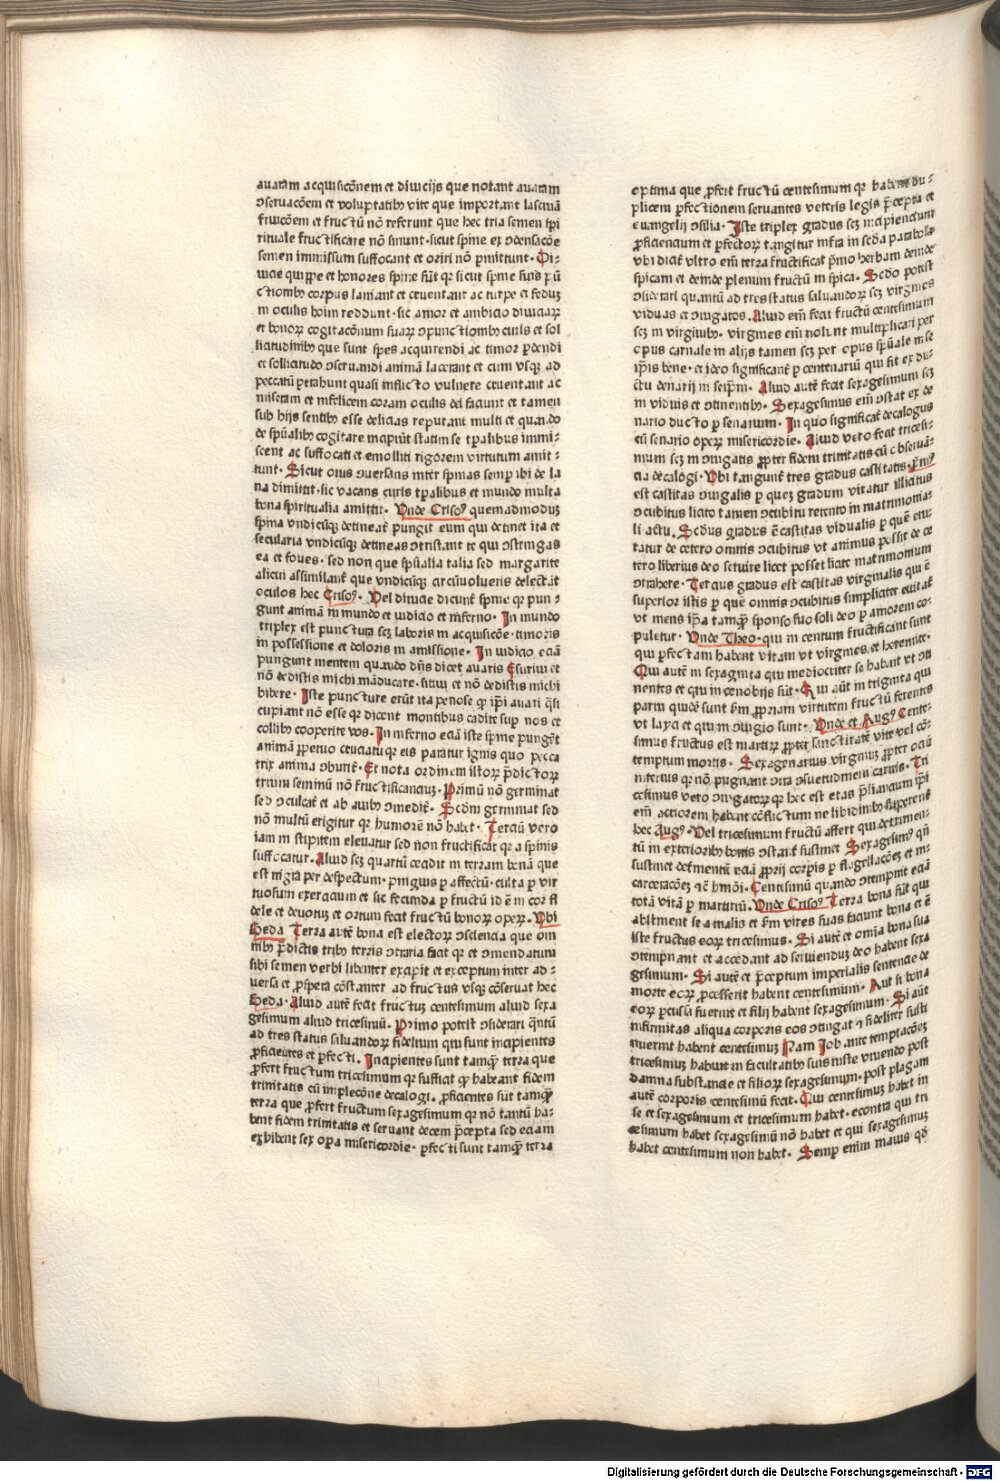 auaram acquisicōnem et diuicijs que notant auaram
ↄseruacōem et voluptatibꝰ vite que important lasciuā
fruicōem et fructū nō referunt que hec tria semen spi
rituale fructificare nō sinunt · sicut spine ex ↄdensacōe
semen immissum suffocant et oriri nō ꝑmittunt · Di⸗
uicie quippe et honores spine sūt qꝛ sicut spine suis pū
ctionibꝰ corpus laniant et cruentant ac turpe et feduꝫ
in oculis hoim reddunt · sic amor et ambicio diuiciaꝝ
et honoꝝ cogitacōnum suaꝝ ↄpunctionibꝰ curis et sol
licitudinibꝰ que sunt spēs acquirendi ac timor ꝑdendi
et sollicitudo ↄseruandi animā lacerant et cum vsqꝫ ad
peccatū ꝑtrahunt quasi inflicto vulnere cruentant ac
miseram et infelicem coram oculis dei faciunt et tamen
sub hijs sentibꝰ esse delicias reputant multi et quando
de spūalibꝰ cogitare incipiūt statim se tꝑalibus immi⸗
scent ac suffocati et emolliti rigorem virtutum amit⸗
tunt · Sicut onus ↄuersans inter spinas semꝑ ibi de la
na dimittit · sic vacans curis tꝑalibus et mundo multa
bona spiritualia amittit · Vnde Crisoꝰ quemadmoduꝫ
spina vndicūqꝫ detineat̄ pungit eum qui detinet ita et
secularia vndicūqꝫ detineas ↄtristant te qui ↄstringas
ea et foues · sed non que spūalia talia sed margarite
alicui assimilant̄ que vndicūqꝫ circūuolueris delectāt
oculos hec Crisoꝰ · Vel diuicie dicunt̄ spine qꝛ pun⸗
gunt animā in mundo et iudicio et inferno · In mundo
triplex est punctura scꝫ laboris in acquisicōe · timoris
in possessione et doloris in amissione · In iudicio eciā
pungunt mentem quando dn̄s dicet auaris Esuriui et
nō dedistis michi māducare · sitiui et nō dedistis michi
bibere · Iste puncture erūt ita penose qꝙ ip̄i auari qͥsi
cupiant nō esse qꝛ dicent montibus cadite sup nos et
collibꝰ cooperite vos · In inferno eciā iste spine pungēt
animā ꝑpetuo cruciatu qꝛ eis paratur ignis quo pecca
trix anima ↄburit̄ · Et nota ordinem istoꝝ p̄dictoꝝ
trium seminū nō fructificanciuꝫ · Primū nō germinat
sed ↄculcat̄ et ab auibꝰ ↄmedit̄ · Scdm̄ germinat sed
nō multū erigitur qꝛ humorē nō habet · Terciū vero
iam in stipitem eleuatur sed non fructificat qꝛ a spinis
suffocatur · Aliud scꝫ quartū cecidit in terram bonā que
est nigra per despectum · pinguis ꝑ affectū · culta ꝑ vir
tuosum exercicium et sic fecunda ꝑ fructū id ē in cor fi
dele et deuotuꝫ et ortum fecit fructū bonoꝝ opeꝝ · Vbi
Beda Terra autē bona est electoꝝ ↄsciencia que om
nibꝰ p̄dictis tribꝰ terris ↄtraria facit qꝛ et ↄmendatum
sibi semen verbi libenter excipit et exceptum inter ad⸗
uersa et ꝓspera cōstanter ad fructus vsqꝫ cōseruat hec
Beda · Aliud autē fecit fructuꝫ centesimum aliud sexa
gesimum aliud tricesimū · Primo potest ↄsiderari qͣntū
ad tres status saluandoꝝ fidelium qui sunt incipientes
ꝓficientes et ꝑfecti · Incipientes sunt tamqͣꝫ terra que
ꝓfert fructum tricesimum qꝛ sufficit qꝙ habeant fidem
trinitatis cū implecōne decalogi · ꝓficientes sūt tamqͣꝫ
terra que ꝓfert fructum sexagesimum qꝛ nō tantū ha⸗
bent fidem trinitatis et seruant decem p̄cepta sed eciam
exhibent sex oꝑa misericordie · ꝑfecti sunt tamqͣꝫ terra
optima que ꝓfert fructū centesimum qꝛ habent du⸗
plicem ꝑfectionem seruantes veteris legis p̄cepta et
euangelij ↄsilia · Iste triplex gradus scꝫ incipienciuꝫ
ꝓficiencium et ꝑfectoꝝ tangitur infra in scda parabola
vbi dicit̄ vltro em̄ terra fructificat p̄mo herbam deinde
spicam et deinde plenum fructū in spica · Scdo potest
ↄsiderari quantū ad tres status saluandoꝝ scꝫ virgines
viduas et ↄiugatos · Aliud em̄ fecit fructū centesimum
scꝫ in virginibꝰ · virgines em̄ nolunt multiplicari per
opus carnale in alijs tamen scꝫ per opus spūale in se
ip̄is bene · et ideo significant̄ ꝑ centenariū qui fit ex du⸗
ctu denarij in seip̄m · Aliud autē fecit sexagesimum scꝫ
in viduis et ↄtinentibꝰ · Sexagesimus em̄ ↄstat ex de
nario ducto ꝑ senarium · In quo significat̄ decalogus
cū senario opeꝝ misericordie · Aliud vero fecit tricesi⸗
mum scꝫ in ↄiugatis ꝓpter fidem trinitatis cū obseruā⸗
cia decalogi · Vbi tangunt̄ tres gradus castitatis · p̄mꝰ
est castitas ↄiugalis ꝑ queꝫ gradum vitatur illicitus
ↄcubitus licito tamen ↄcubitu retento in matrimonia⸗
li actu · Scdus gradus ē castitas vidualis ꝑ quē eui⸗
tatur de cetero omnis ↄcubitus vt animus possit de ce
tero liberius deo seruire licet posset licite matrimonium
ↄtrahere · Tercius gradus est castitas virginalis qui ē
superior istis ꝑ quē omnis ↄcubitus simpliciter euitat̄
vt mens ip̄a tamqͣꝫ sponso suo soli deo ꝑ amorem co⸗
puletur · Vnde Theo · qui in centum fructificant sunt
qui ꝑfectam habent vitam vt virgines et heremite ·
Qui autē in sexaginta qui mediocriter se habent vt ↄti
nentes et qui in cenobijs sūt · Qui aūt in triginta qui
parui quidē sunt s̄m ꝓpriam virtutem fructū ferentes
vt layci et qui in ↄiugio sunt · Vnde et Augꝰ Cente⸗
simus fructus est martiꝝ ꝓpter sanctitatē vite vel cō⸗
temptum mortis · Sexagenarius virginuꝫ ꝓpter ociū
interius qꝛ nō pugnant ↄtra ↄsuetudinem carnis · Tri
cesimus vero ↄiugatoꝝ qꝛ hec est etas p̄liancium ip̄i
em̄ acriorem habent cōflictum ne libidinibꝰ superent̄
hec Augꝰ · Vel tricesimum fructū affert qui detrimen⸗
tū in exterioribꝰ bonis ↄstant̄ sustinet Sexagesimꝰ qn̄
sustinet detrimentū eciā ꝓprij corpis ꝑ flagellacōes et in⸗
carceracōes ⁊c̄ hmōi · Centesimū quando ↄtempnit eciā
totā vitā ꝑ martiriū · Vnde Crisoꝰ Terra bona sūt qui
abstinent se a malis et s̄m vires suas faciunt bona et ē
iste fructus eoꝝ tricesimus · Si autē et om̄ia bona sua
ↄtempnant et accedant ad seruienduꝫ deo habent sexa
gesimum · Si autē et p̄ceptum imperialis sentencie de
morte eoꝝ ꝓcesserit habent centesimum · Aut si bona
eoꝝ ꝑcussa fuerint et filij habent sexagesimum · Si aūt
infirmitas aliqua corporis eos ↄtingat ⁊ fideliter susti
nuerint habent centesimuꝫ Nam Iob ante temptacōeꝫ
tricesimuꝫ habuit in facultatibꝰ suis iuste viuendo post
damna substancie et filioꝝ sexagesimum · post plagam
autē corporis centesimū fecit · Qui centesimuꝫ habet in
se et sexagesimum et tricesimum habet · econtra qui tri
cesimum habet sexagesimū nō habet et qui sexagesimuꝫ
habet centesimum non habet · Semꝑ enim maius qd̄
Digitalisierung gefördert durch die Deutsche Forschungsgemeinschaft - DFG